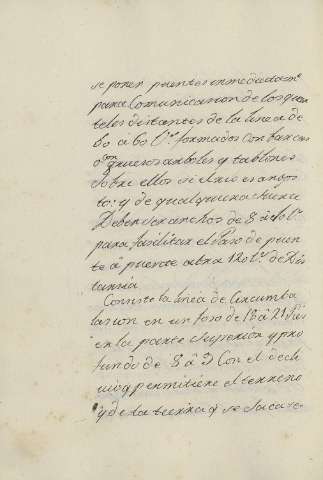 se ponen puentes inmediatam.te
para Comunicacion de los quar
teles distantes de la linea de
50 à 60 V.s formados con barcas
o con gruesos arboles y tablones
sobre ellos si el rio es angos
to: y de qualquiera suerte
Deben ser anchos de 8 à 10 V.s
para facilitar el Paso de puen
te â puente abra 120 V.s de Dis
tancia
Consiste la linea de Circumba
lacion en un foso de 18 â 21 Pies
en la parte Superior y pro
fundo de 8 â 9 Con el decli
vio q permitiere el terreno
y de la tierra q se sacare